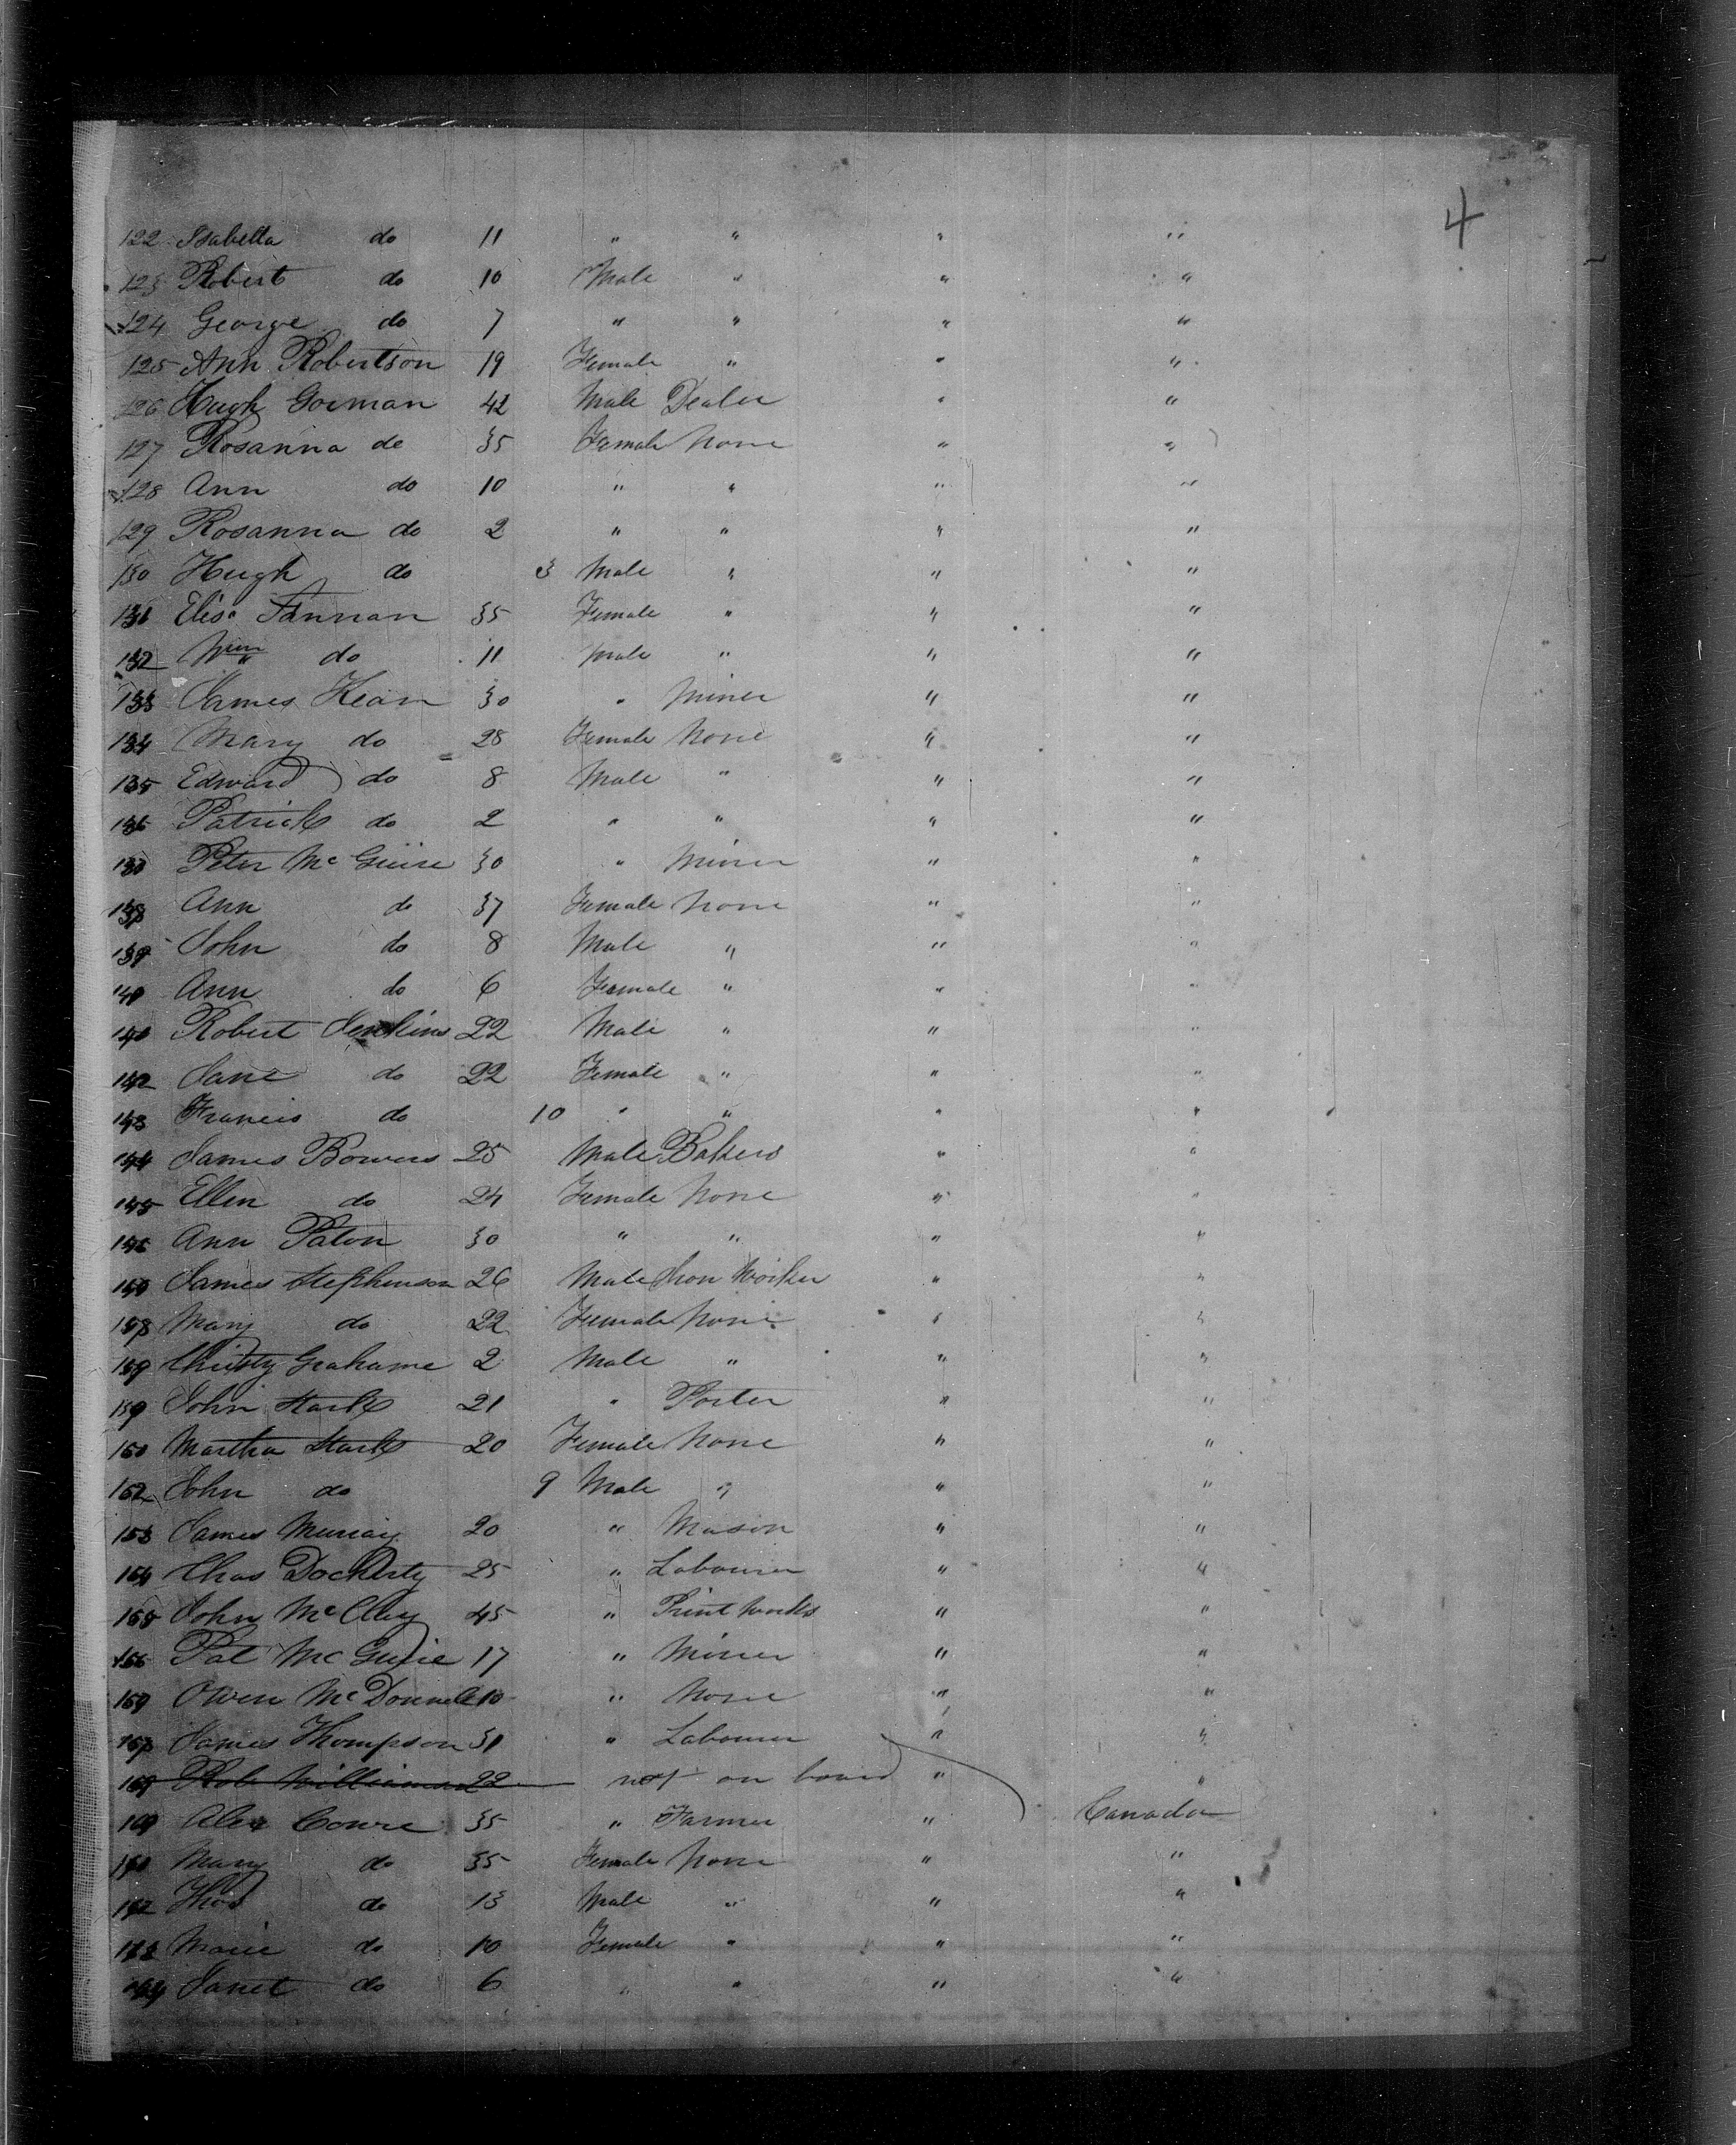 4
122 Isabella do 11 " " " "
123 Robert do 10 Male " " "
124 George do 7 " " " "
125 Ann Robertson 19 Female " " "
126 Hugh Gorman 42 Male Dealer " "
127 Rosanna do 35 Female None " "
128 Ann do 10 " " " "
129 Rosanna do 2 " " " "
130 Hugh do 3 Male " " "
131 Elisa Fannan 35 Female " " "
132 Wm do 11 Male " " "
133 James Kean 30 " Miner " "
134 Mary do 28 Female None " "
135 Edward do 8 Male " " "
136 Patrick do 2 " " " "
Peter McGuire 30 " Miner " "
138 Ann do 37 Female None " "
139 John do 8 Male " " "
140 Ann do 6 Female " " "
Robert Jenkins 22 Male " " "
142 Jane do 22 Female " " "
143 Francis do 10 " " " "
144 James Bowers 25 Male Bakers " "
145 Ellen do 24 Female None " "
146 Ann Paton 30 " " " "
James Stephenson 26 Male Iron Worker " "
Mary do 22 Female None " "
Christy Grahame 2 Male " " "
John Stark 21 " Porter " "
Martha Stark 20 Female None " "
152 John do 9 Male " " "
153 James Murray 20 " Mason " "
154 Chas Docherty 25 " Labourer " "
155 John McCluy 45 " Print works " "
156 Pat McGuire 17 " Miner " "
Owen McDonnell 10 " None " "
James Thompson 31 " Labourer " "
Rob Williamson 22 not on board " "
Alex Cowie 35 " Farmer " Canada
Mary do 35 Female None " "
Thos do 13 Male " " "
Marie do 10 Female " " "
Janet do 6 " " " "